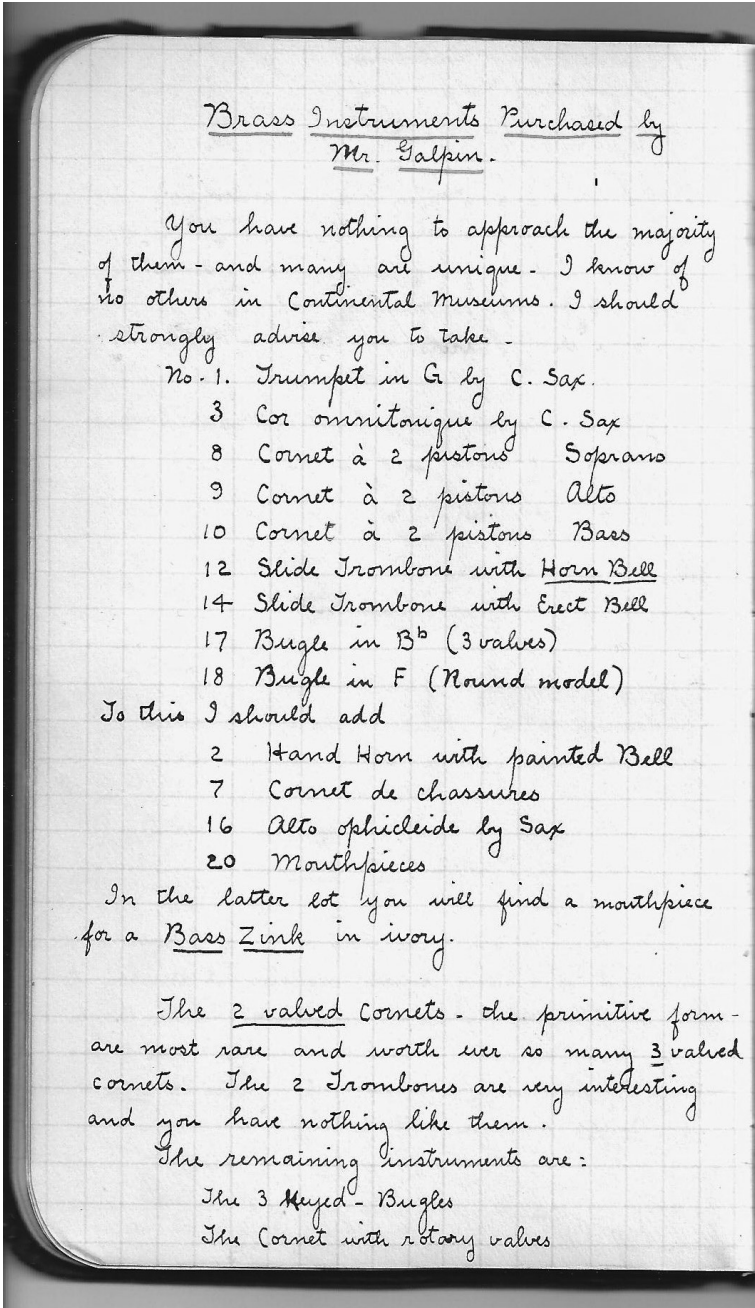 Brass Instruments Purchased by
Mr. Galpin.
You have nothing to approach the majority
of them - and many are unique - I know of
no others in Continental Museums. I should
strongly advise you to take -
No. 1. Trumpet in G by C. Sax.
3 Cor omnitonique by C. Sax
8 Cornet à 2 pistons Soprano
9 Cornet à 2 pistons Alto
10 Cornet à 2 pistons Bass
12 Slide Trombone with Horn Bell
14 Slide Trombone with Erect Bell
17 Bugle in Bb (3 valves)
18 Bugle in F (Round model)
To this I should add
2 Hand Horn with painted Bell
7 Cornet de chassures
16 Alto ophicleide by Sax
20 Mouthpieces
In the latter lot you will find a mouthpiece
for a Bass Zink in ivory.
The 2 valved Cornets - the primitive form -
are most rare and worth ever so many 3 valved
cornets. The 2 Trombones are very interesting
and you have nothing like them.
The remaining instruments are:
The 3 Keyed - Bugles
The Cornet with rotary valves